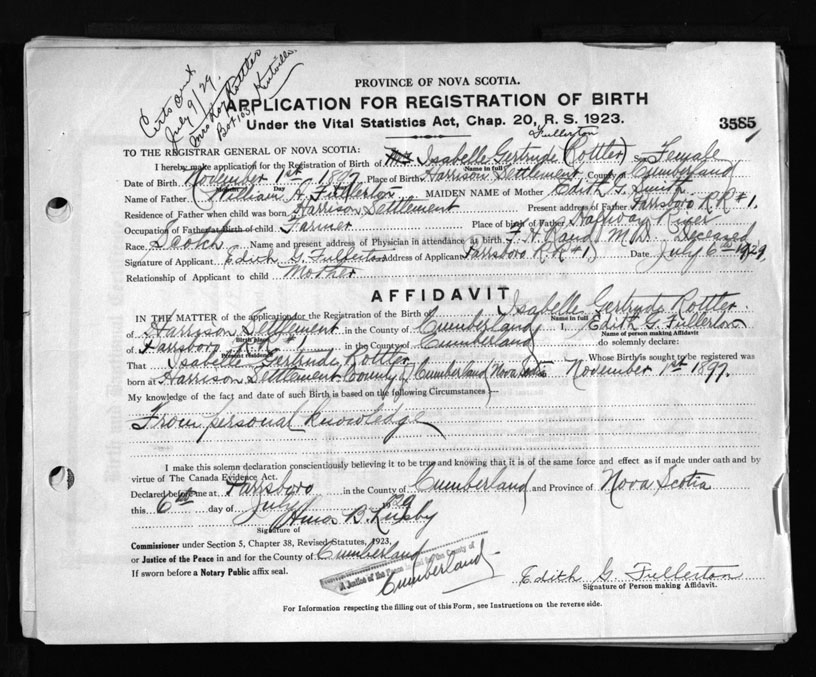 Certs out
July 9/29.
Mrs Roy Rottler
Box 103, Kentville.
PROVINCE OF NOVA SCOTIA.
APPLICATION FOR REGISTRATION OF BIRTH
Under the Vital Statistics Act, Chap. 20, R. S. 1923.
3585
TO THE REGISTRAR GENERAL OF NOVA SCOTIA:
Fullerton
I hereby make application for the Registration of Birth of Mrs Isabelle Gertrude (Rottler) Sex Female
Name in full
Date of Birth November 1st 1897 Place of Birth Harrison Settlement, County of Cumberland
Day
Name of Father (William A. Fullerton MAIDEN NAME of Mother Edith G. Smith
Residence of Father when child was born Harrison Settlement Present address of Father Parrsboro R.R #1.
Occupation of Father at Birth of child Farmer Place of birth of Father Halfway River
Race Scotch Name and present address of Physician in attendance at birth F. A. Rand M.D. Deceased
Signature of Applicant Edith G. Fullerton Address of Applicant Parrsboro R.R #1) Date July 6th 1929
Relationship of Applicant to child Mother
AFFIDAVIT
IN THE MATTER of the application for the Registration of the Birth of Isabelle Gertrude Rottler.
Name in full
of Harrison Settlement in the County of Cumberland I, Edith G. Fullerton
Birth place Name of person making Affidavit
of Parrsboro R.R #1 in the County of Cumberland do solemnly declare:
Present residence
That Isabelle Gertrude Rottler Whose Birth is sought to be registered was
born at Harrison Settlement County of Cumberland Nova Scotia November 1st 1897.
My knowledge of the fact and date of such Birth is based on the following Circumstances:—
From personal knowledge
I make this solemn declaration conscientiously believing it to be true and knowing that it is of the same force and effect as if made under oath and by
virtue of The Canada Evidence Act.
Declared before me at Parrsboro in the County of Cumberland and Province of Nova Scotia
this 6th day of July 1929
Amos B. Rugby
Signature of
Commissioner under Section 5, Chapter 38, Revised Statutes, 1923,
or Justice of the Peace in and for the County of Cumberland
If sworn before a Notary Public affix seal.
A Justice of the Peace in and for the County of
Cumberland
Edith G. Fullerton
Signature of Person making Affidavit.
For Information respecting the filling out of this Form, see Instructions on the reverse side.